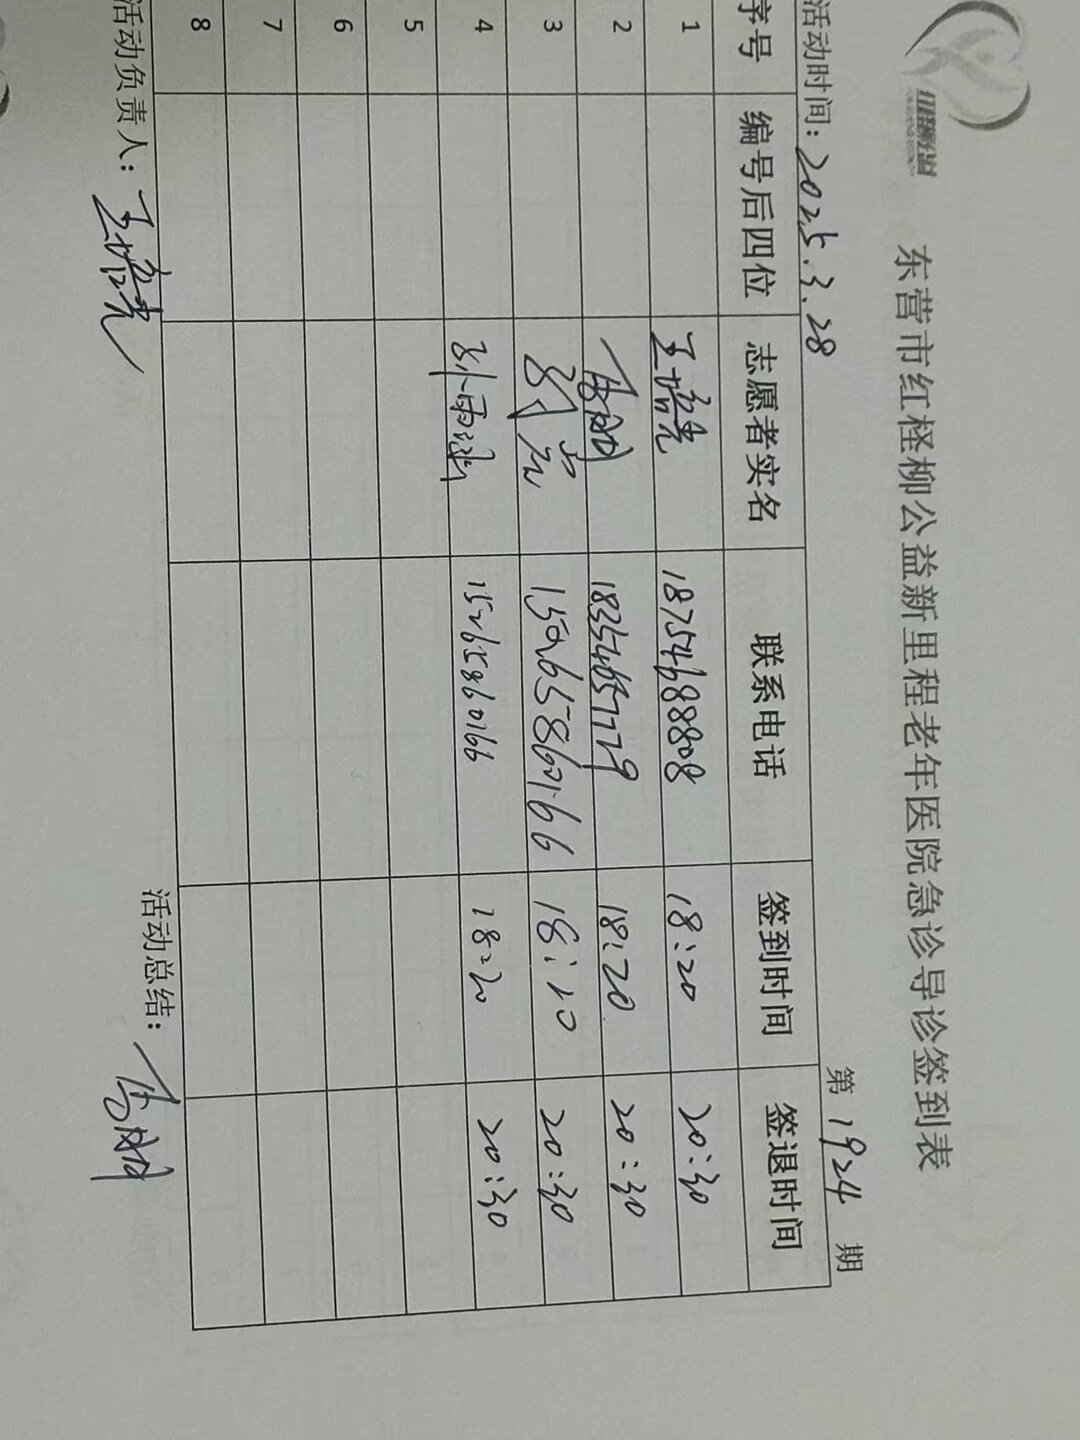 东营市红柽柳公益新里程老年医院急诊导诊签到表
活动时间：2025.3.28 第 1924 期
序号 编号后四位 志愿者实名 联系电话 签到时间 签退时间
1 18754688808 18:20 20:30
2 18354657779 18:20 20:30
3 15265860166 18:20 20:30
4 孙雨涵 15265860166 18:20 20:30
5
6
7
8
活动负责人： 活动总结：